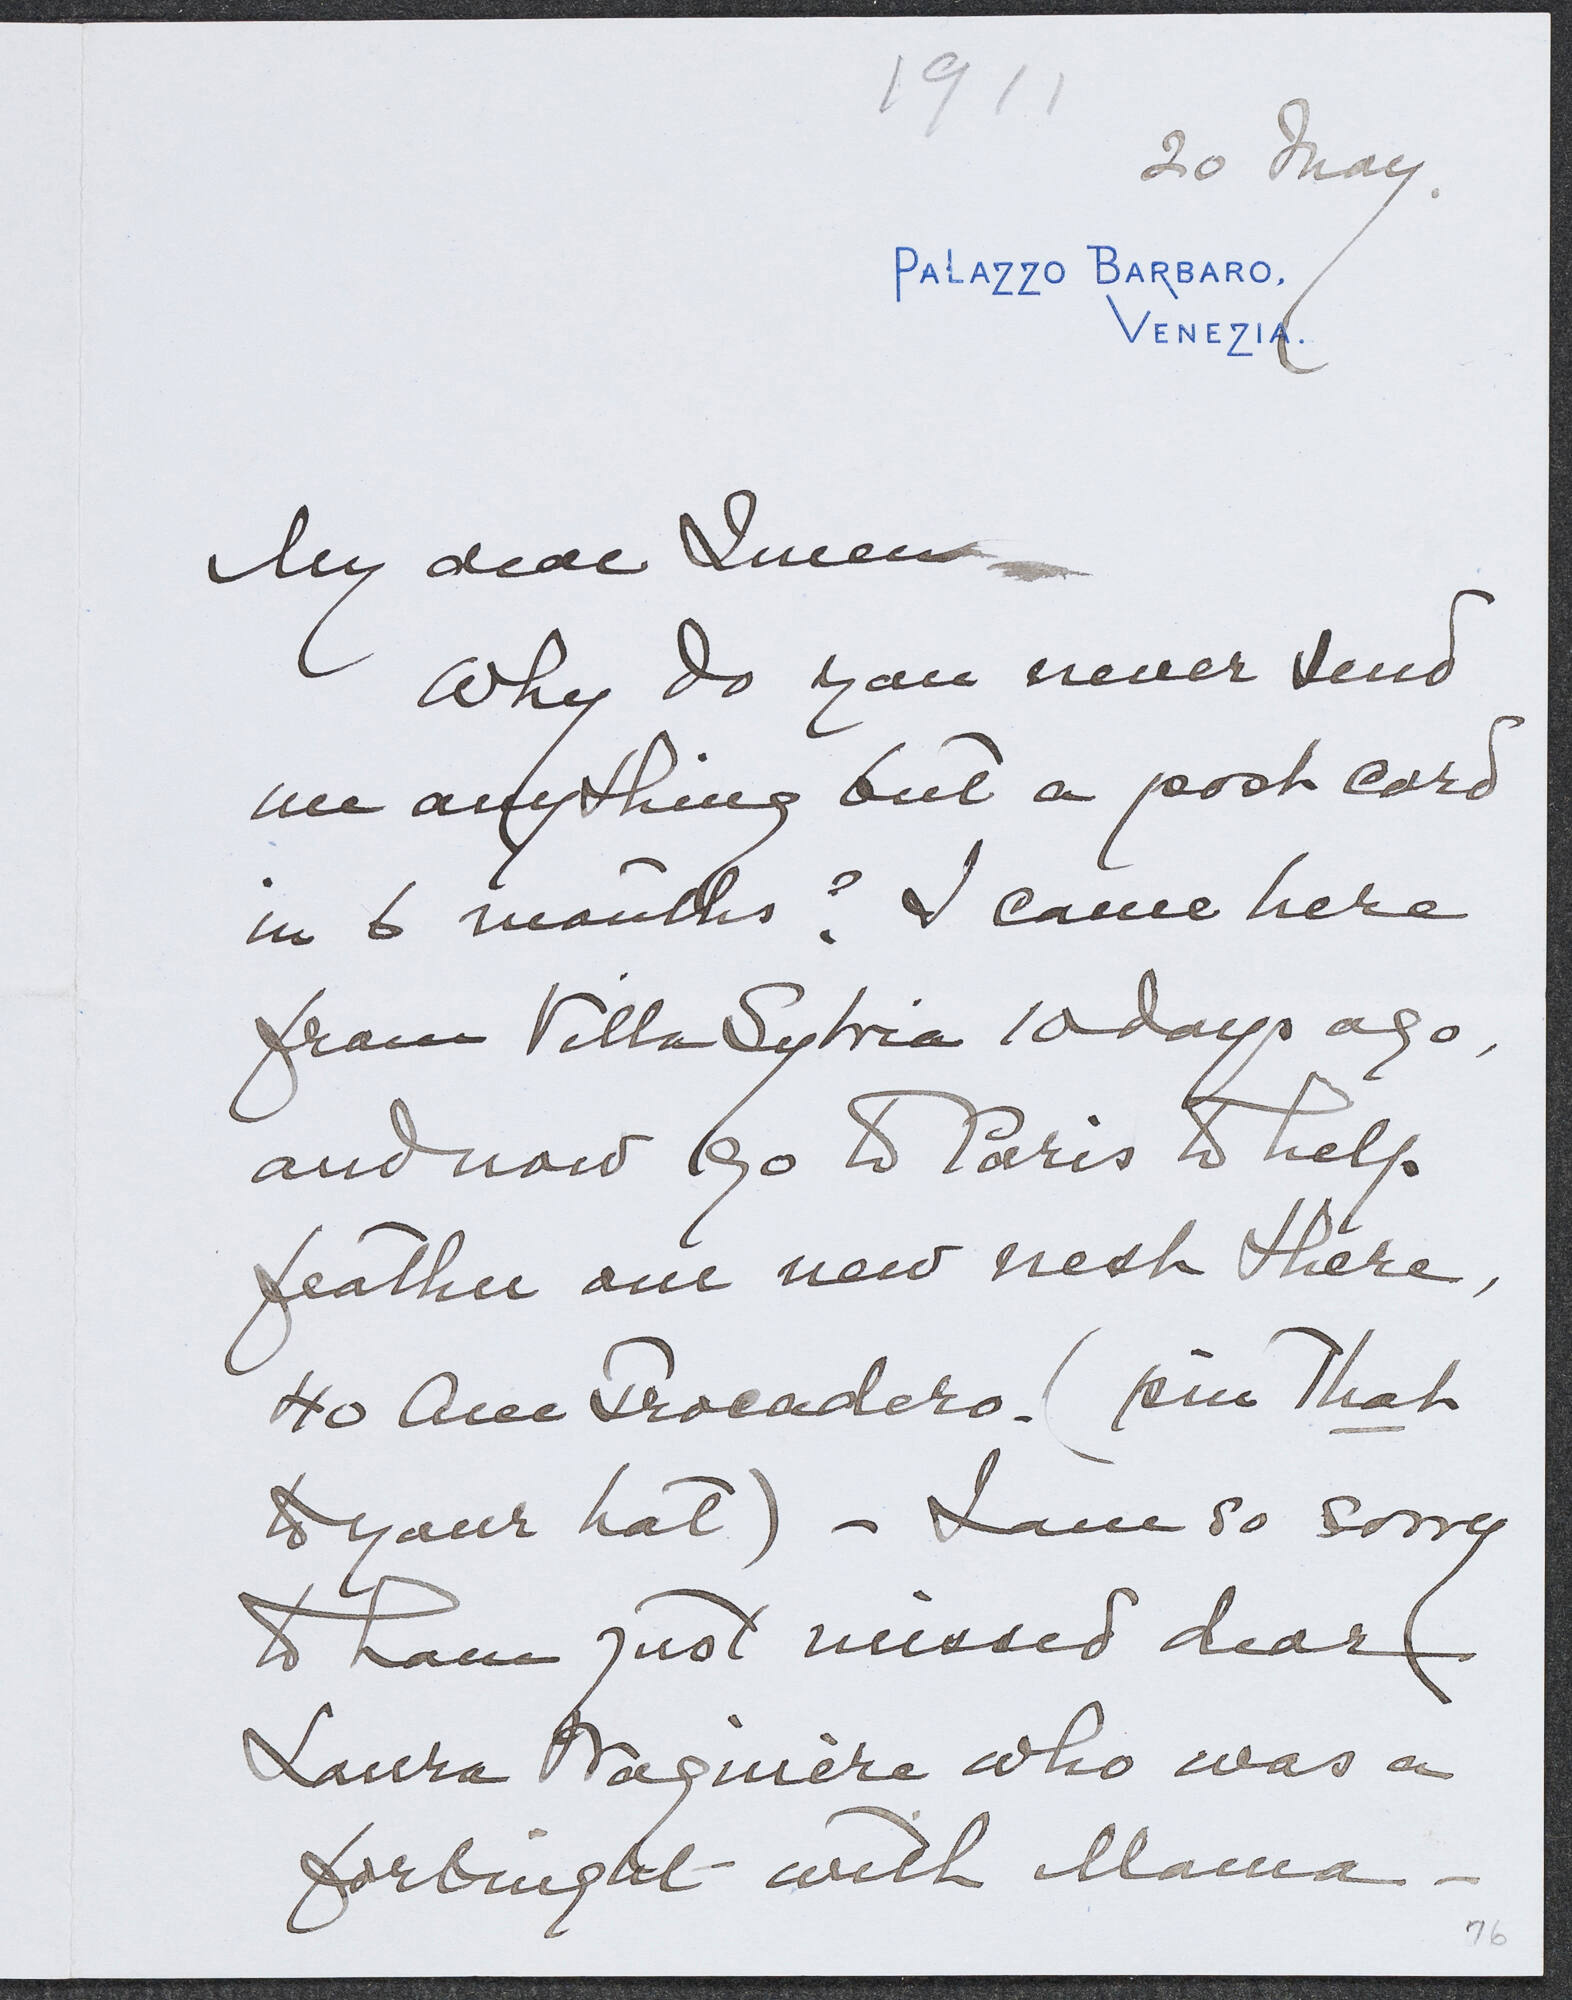 1911
20 May.
PALAZZO BARBARO,
VENEZIA.
My dear Queen
Why do you never send
me anything but a post card
in 6 months? I came here
from Villa Sylvia 10 days ago,
and now go to Paris to help
feather our new nest there,
40 Ave Trocadero. (pin that
to your hat) - I am so sorry
to have just missed dear
Laura Wagnière who was a
fortnight with Mama -
76